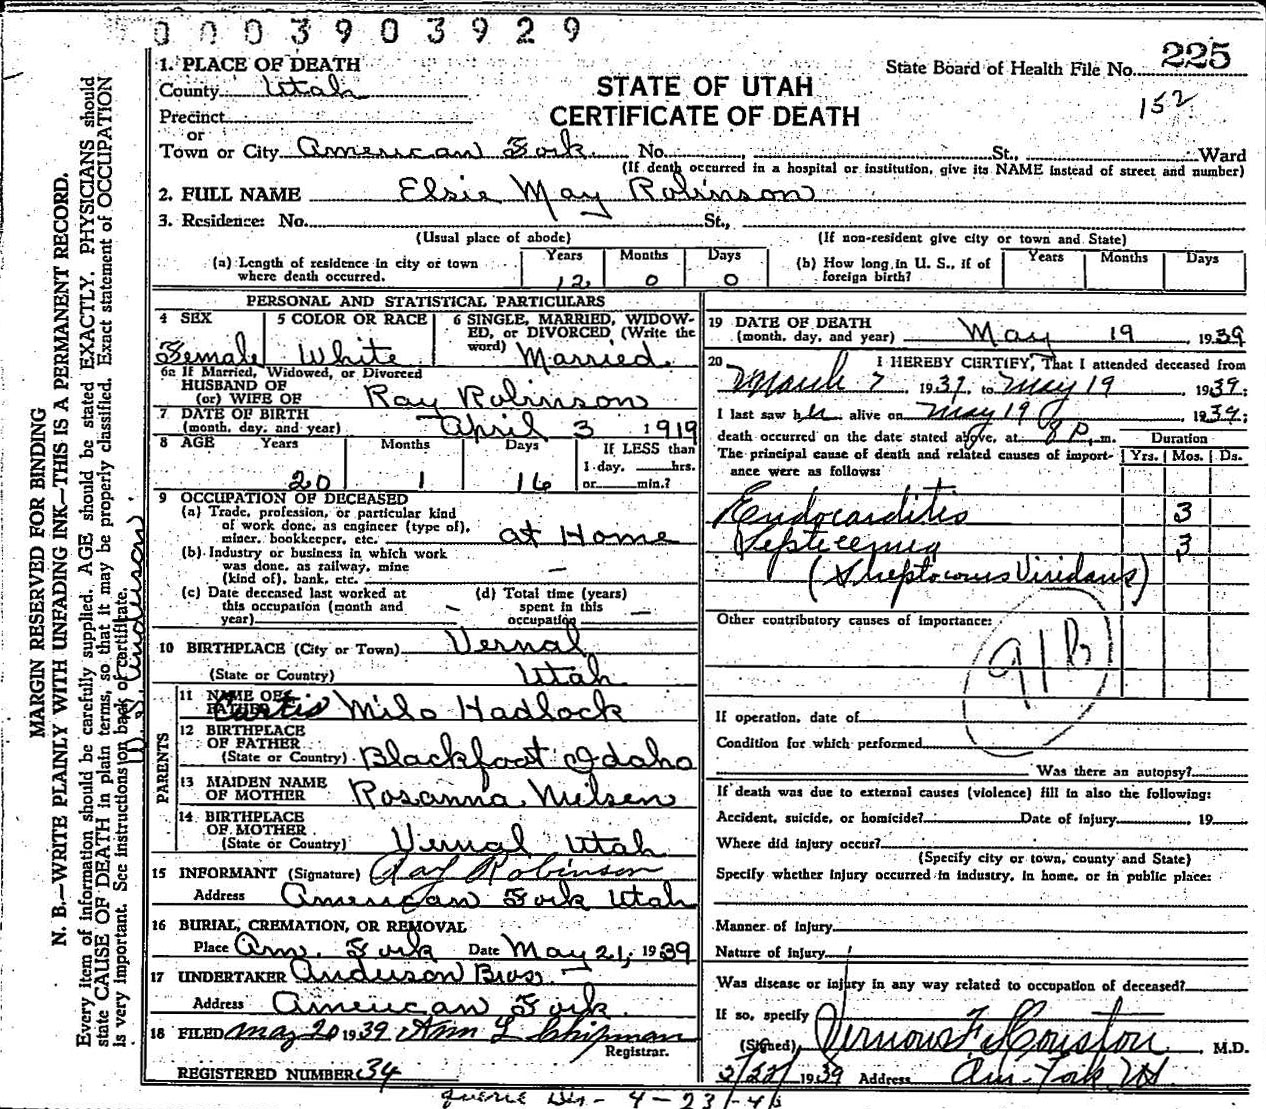 0003903929
225
State Board of Health File No.
152
STATE OF UTAH
CERTIFICATE OF DEATH
1. PLACE OF DEATH
County Utah
Precinct
or
Town or City American Fork No. St., Ward
(If death occurred in a hospital or institution, give its NAME instead of street and number)
2. FULL NAME Elsie May Robinson
3. Residence: No. St.,
(Usual place of abode) (If non-resident give city or town and State)
(a) Length of residence in city or town where death occurred. Years 12 Months 0 Days 0
(b) How long in U. S., if of foreign birth? Years Months Days
PERSONAL AND STATISTICAL PARTICULARS
4 SEX Female
5 COLOR OR RACE White
6 SINGLE, MARRIED, WIDOWED, or DIVORCED (Write the word) Married
6a If Married, Widowed, or Divorced
HUSBAND OF
(or) WIFE OF Ray Robinson
7 DATE OF BIRTH
(month, day, and year) April 3 1919
8 AGE Years 20 Months 1 Days 16
If LESS than
1 day, hrs.
or min.?
9 OCCUPATION OF DECEASED
(a) Trade, profession, or particular kind
of work done, as engineer (type of),
miner, bookkeeper, etc. at Home
(b) Industry or business in which work
was done, as railway, mine
(kind of), bank, etc. —
(c) Date deceased last worked at
this occupation (month and
year) —
(d) Total time (years)
spent in this
occupation —
10 BIRTHPLACE (City or Town) Vernal
(State or Country) Utah
PARENTS
11 NAME OF
FATHER Curtis Milo Hadlock
12 BIRTHPLACE
OF FATHER
(State or Country) Blackfoot Idaho
13 MAIDEN NAME
OF MOTHER Rosanna Nielsen
14 BIRTHPLACE
OF MOTHER
(State or Country) Vernal Utah
15 INFORMANT (Signature) Ray Robinson
Address American Fork Utah
16 BURIAL, CREMATION, OR REMOVAL
Place Am. Fork Date May 21, 1939
17 UNDERTAKER Anderson Bros.
Address American Fork
18 FILED May 20 1939 Ann L Chipman
Registrar.
REGISTERED NUMBER 34
19 DATE OF DEATH
(month, day, and year) May 19 1939
20 I HEREBY CERTIFY, That I attended deceased from
March 7 1939, to May 19 1939:
I last saw her alive on May 19 1939:
death occurred on the date stated above, at 8 p.m.
Duration
Yrs. Mos. Ds.
The principal cause of death and related causes of importance were as follows:
Endocarditis 3
Septicemia 3
(Streptococcus Viridans)
Other contributory causes of importance:
91b
If operation, date of
Condition for which performed
Was there an autopsy?
If death was due to external causes (violence) fill in also the following:
Accident, suicide, or homicide? Date of injury 19
Where did injury occur?
(Specify city or town, county and State)
Specify whether injury occurred in industry, in home, or in public place:
Manner of injury
Nature of injury
Was disease or injury in any way related to occupation of deceased?
If so, specify
(Signed) Vernous F. Houston M.D.
5/22/1939 Address Am. Fork Ut.
4-23-4
MARGIN RESERVED FOR BINDING
N. B.—WRITE PLAINLY WITH UNFADING INK—THIS IS A PERMANENT RECORD.
Every item of information should be carefully supplied. AGE should be stated EXACTLY. PHYSICIANS should
state CAUSE OF DEATH in plain terms, so that it may be properly classified. Exact statement of OCCUPATION
is very important. See instructions on back of certificate.
Anderson